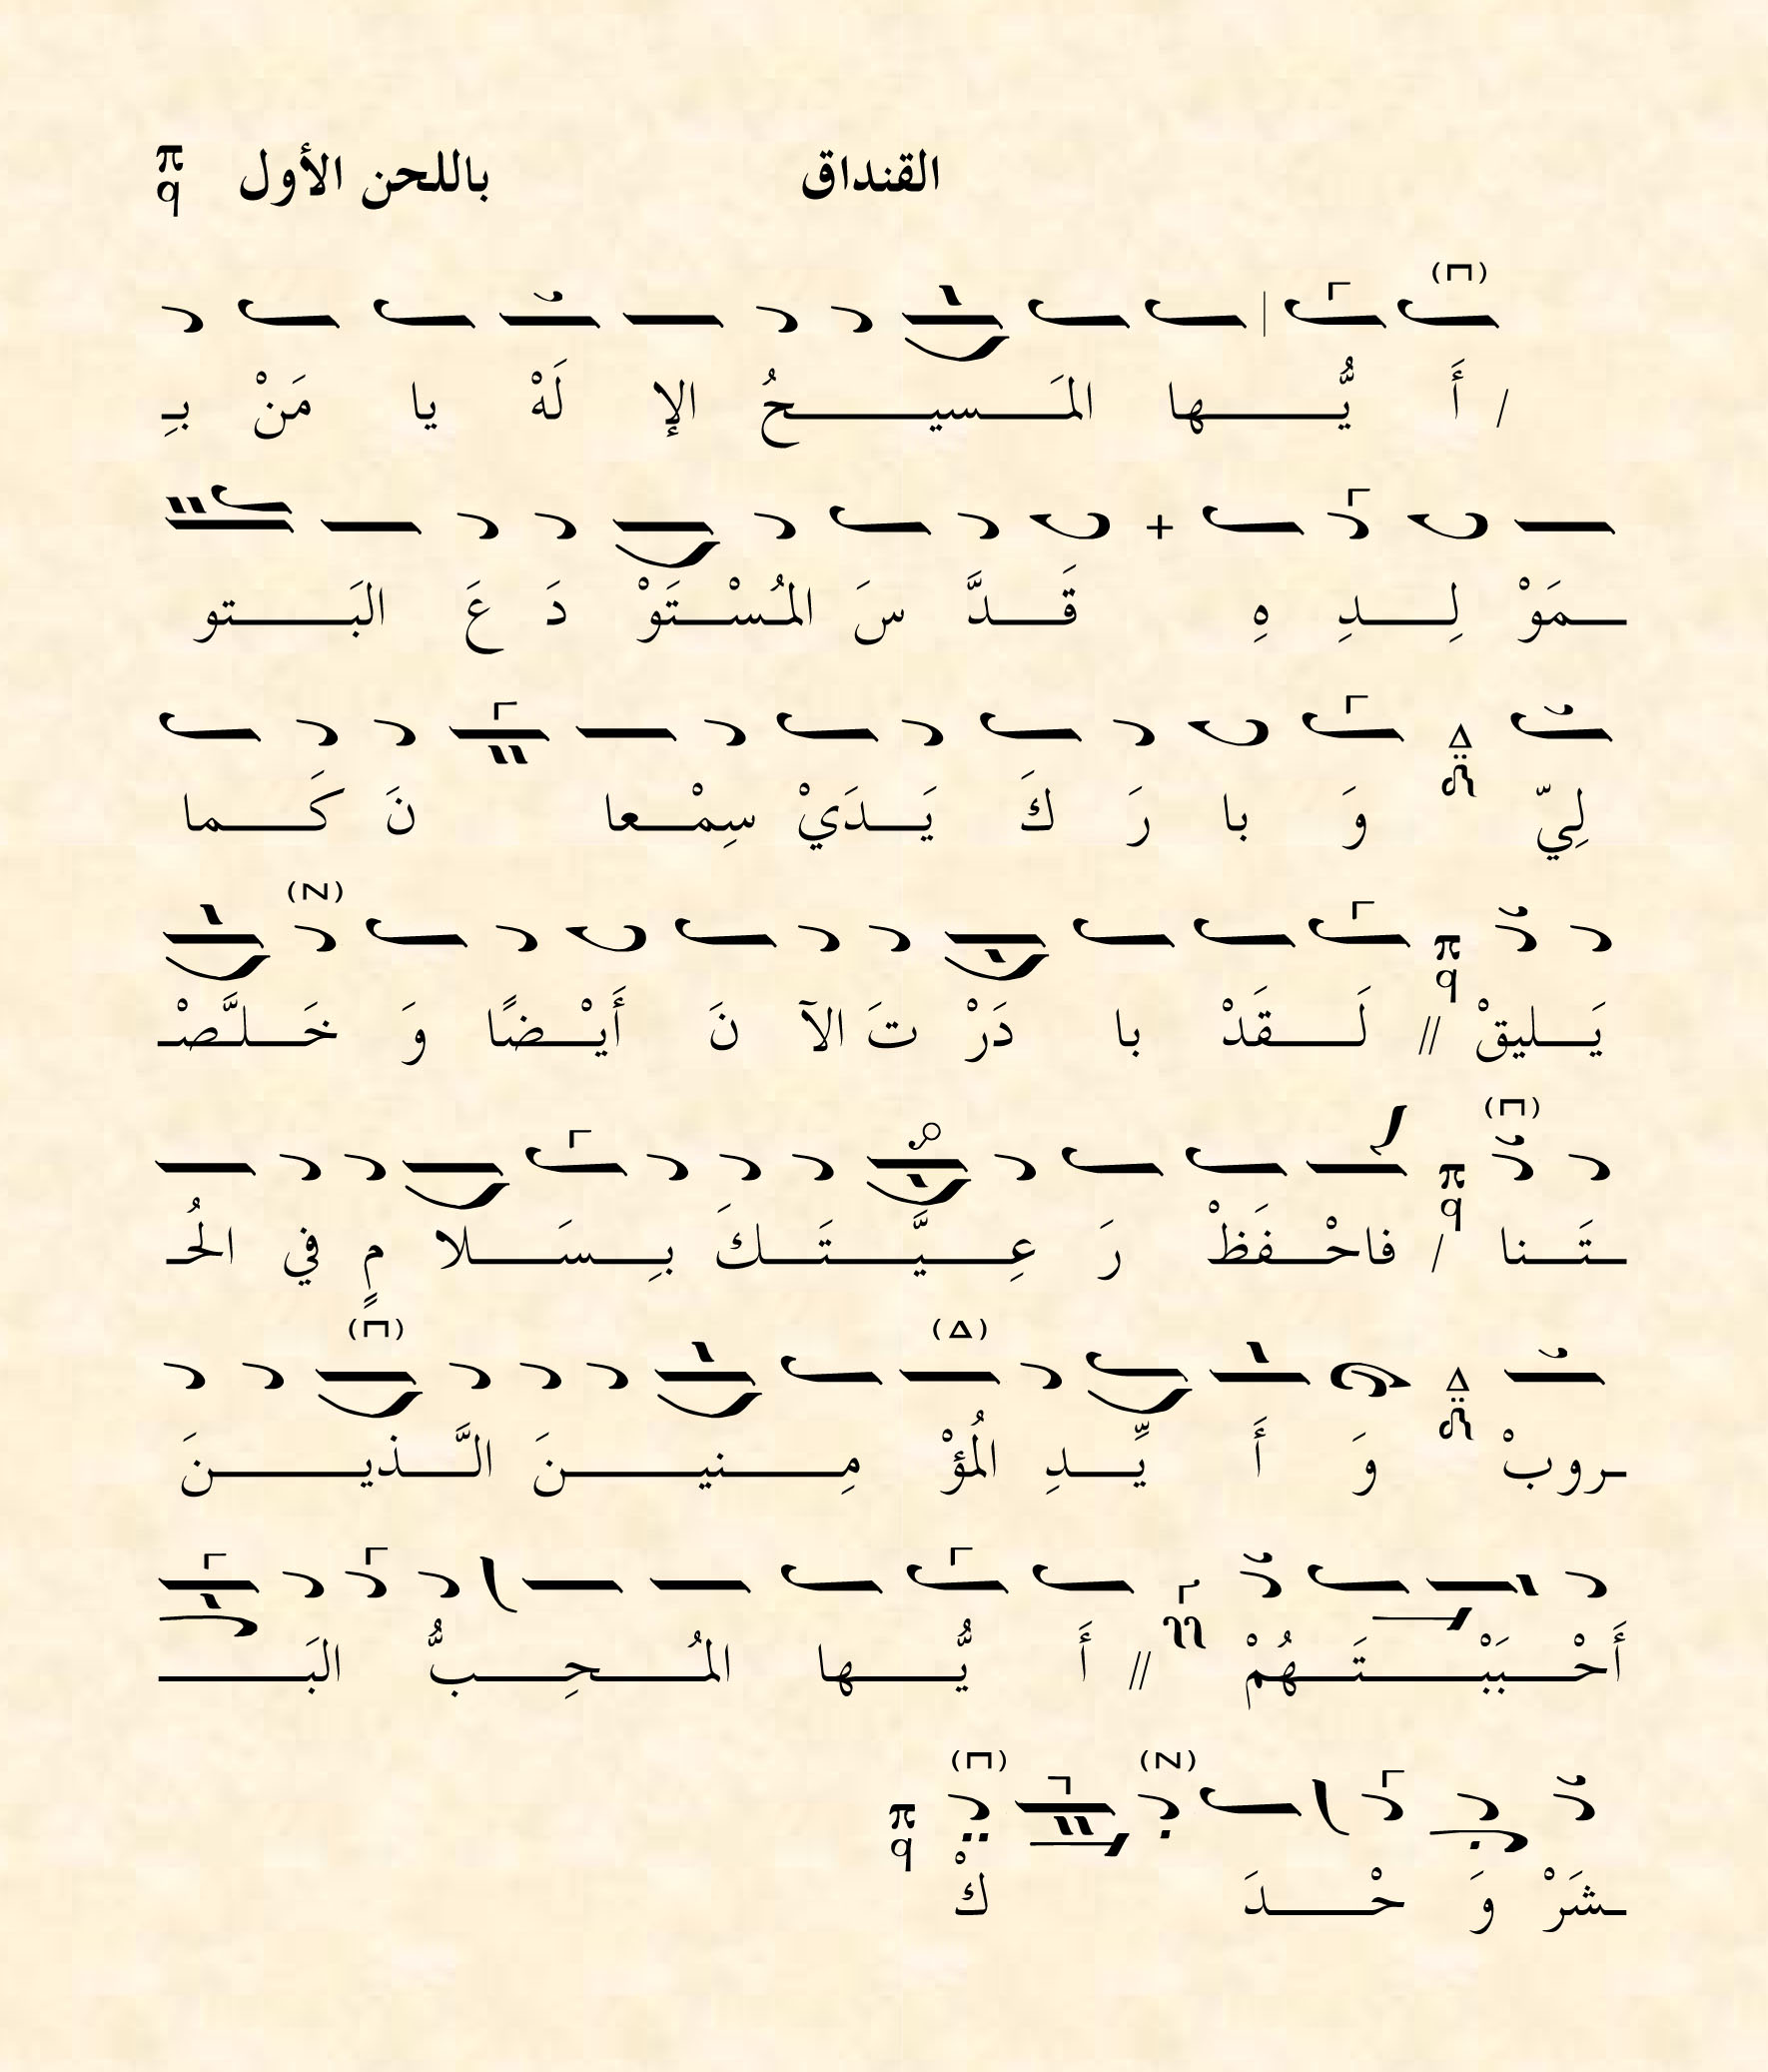 القنداق باللحن الأول
/ أَ يُّـــها المَـــسيـــحُ الإ لَهْ يا مَنْ بـِ
ـمَوْ لِـــدِ هِ قَـــدَّ سَ المُسْـــتَوْ دَ عَ البَـــتو
لِيّ وَ با رَ كَ يَـــدَيْ سِمْـــعا نَ كَـــما
يَـــليقْ // لَـــقَدْ با دَرْ تَ الآ نَ أَيْـــضًا وَ خَـــلَّصْـ
ـتَـــنا / فاحْـــفَظْ رَ عِـــيَّـــتَـــكَ بِـــسَـــلا مٍ في الحُـ
ـروبْ وَ أَ يِّـــدِ المُؤْ مِـــنيـــنَ الَّـــذيـــنَ
أَحْـــبَبْـــتَـــهُمْ // أَ يُّـــها المُـــحِـــبُّ البَـــ
ـشَرْ وَ حْـــدَ كْ